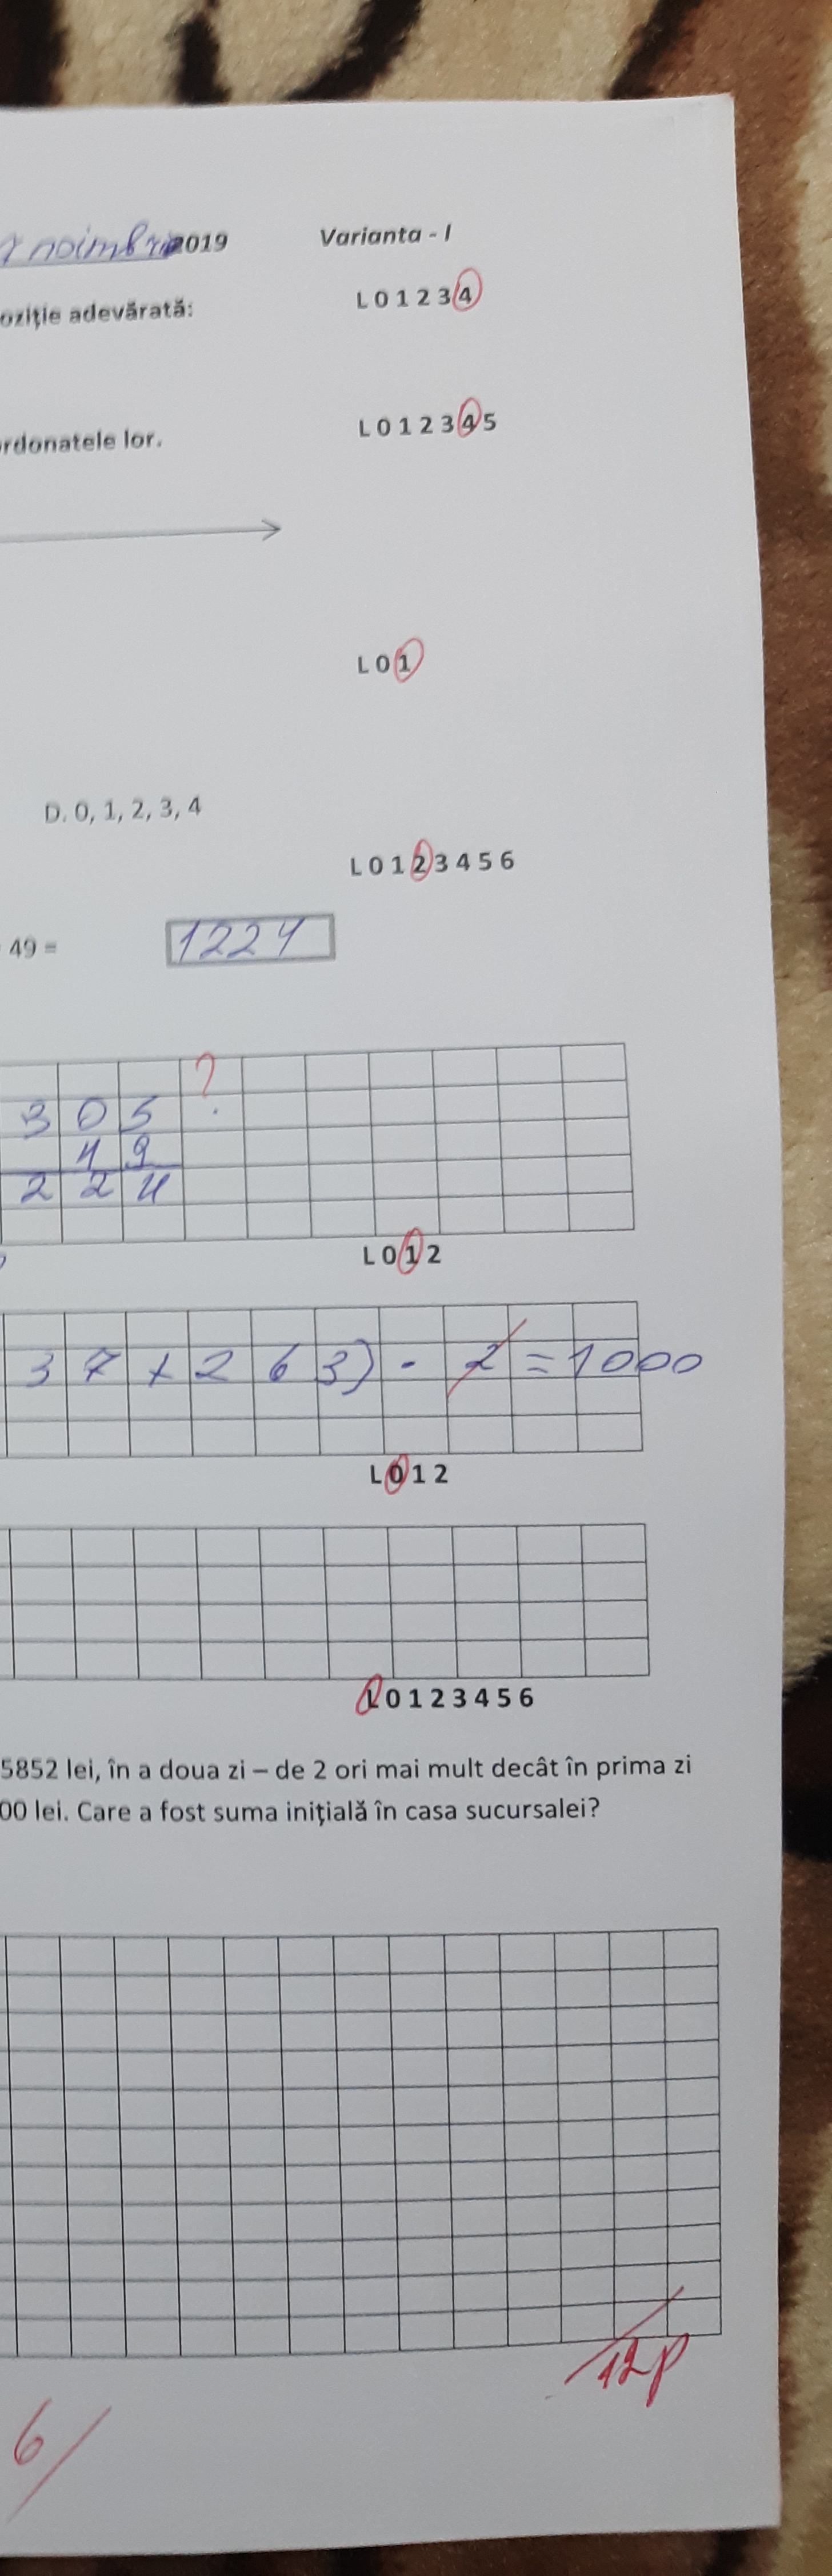 noimbrie 2019 Varianta - I
oziție adevărată:
L 0 1 2 3 4
rdonatele lor.
L 0 1 2 3 4 5
L 0 1
D. 0, 1, 2, 3, 4
L 0 1 2 3 4 5 6
49 = 1224
?
3 0 5
4 9
2 2 4
L 0 1 2
3 7 + 2 6 3) - 2 = 1000
L 0 1 2
L 0 1 2 3 4 5 6
5852 lei, în a doua zi – de 2 ori mai mult decât în prima zi
00 lei. Care a fost suma inițială în casa sucursalei?
12p
6